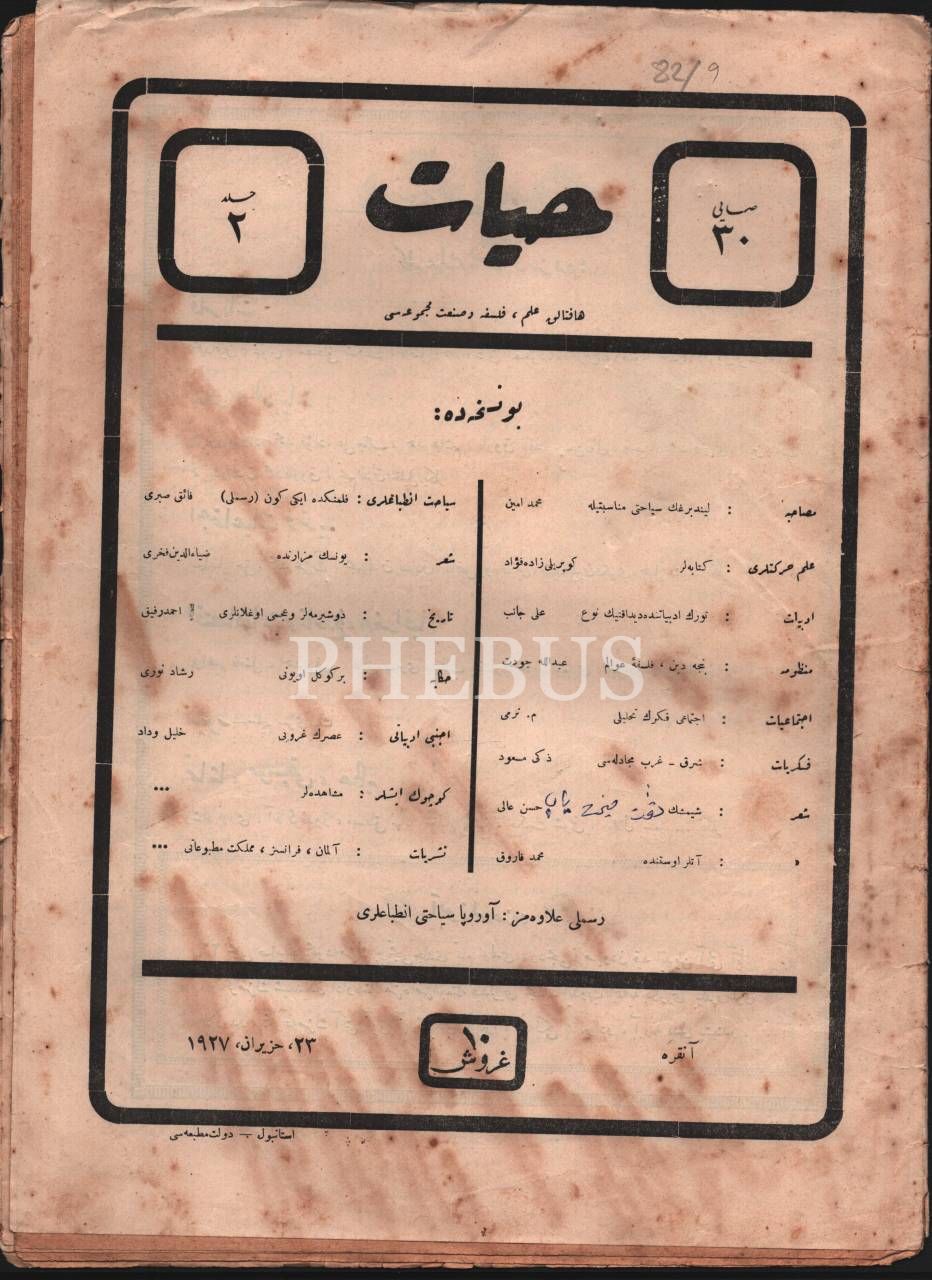 82/9
صايى
٣٠
حيات
جلد
٢
هافتالق علم ، فلسفه وصنعت مجموعه‌سى
بو نسخه‌ده :
مصاحبه : ليندبرغك سياحتى مناسبتيله محمد امين
علم حركتلرى : كتابه‌لر كوپريلى زاده فؤاد
ادبيات : تورك ادبياتنده ديداقتيك نوع على جانب
منظومه : نجه دين ، فلسفۀ عوالم عبدالله جودت
اجتماعيات : اجتماعى فكرك تحليلى م . نرمى
فكريات : شرق - غرب مجادله‌سى ذكى مسعود
شعر : شيمدنك حسن عالى
» : آتلر اوستنده محمد فاروق
سياحت انطباعلرى : فلمنكده ايكى كون (رسملى) فائق صبرى
شعر : يونسك مزارنده ضياءالدين فخرى
تاريخ : دوشيرمه‌لر و عجمى اوغلانلرى احمد رفيق
حكايه : بر كوكل اويونى رشاد نورى
اجنبى ادبياتى : عصرك غروبى خليل وداد
كوچوك ايشلر : مشاهده‌لر ...
نشريات : آلمان ، فرانسز ، مملكت مطبوعاتى ...
PHEBUS
رسملى علاوه‌مز : آوروپا سياحتى انطباعلرى
آنقره
١٠
غروش
٢٣ ، حزيران ، ١٩٢٧
استانبول - دولت مطبعه‌سى